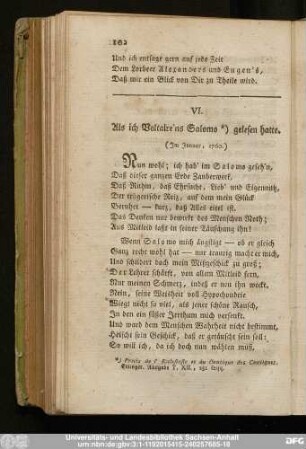 102
Und ich entsage gern auf jede Zeit
Dem Lorbeer Alexanders und Eugen's,
Daß mir ein Blick von Dir zu Theile wird.
VI.
Als ich Voltaire'ns Salomo *) gelesen hatte.
(Im Januar, 1760.)
Nun wohl; ich hab' im Salomo geseh'n,
Daß dieser ganzen Erde Zauberwerk,
Daß Ruhm, daß Ehrsucht, Lieb' und Eigennutz,
Der trügerische Reiz, auf dem mein Glück
Beruhet — kurz, daß Alles eitel ist.
Das Denken nur bewirkt des Menschen Noth;
Aus Mitleid läßt in seiner Täuschung ihn!
Wenn Salomo mich ängstigt — ob er gleich
Ganz recht wohl hat — nur traurig macht er mich,
Und schildert doch mein Mißgeschick zu groß;
Der Lehrer schärft, von allem Mitleid fern,
Nur meinen Schmerz, indeß er neu ihn weckt.
Nein, seine Weisheit voll Hypochondrie
Wiegt nicht so viel, als jener schöne Rausch,
In den ein süßer Irrthum mich versenkt.
Und ward dem Menschen Wahrheit nicht bestimmt,
Heischt sein Geschick, daß er getäuscht sein soll:
So will ich, da ich doch nun wählen muß,
*) Précis de l'Ecclésiaste et du Cantique des Cantiques.
Universitäts- und Landesbibliothek Sachsen-Anhalt
urn:nbn:de:gbv:3:1-1192015415-240257685-18
DFG